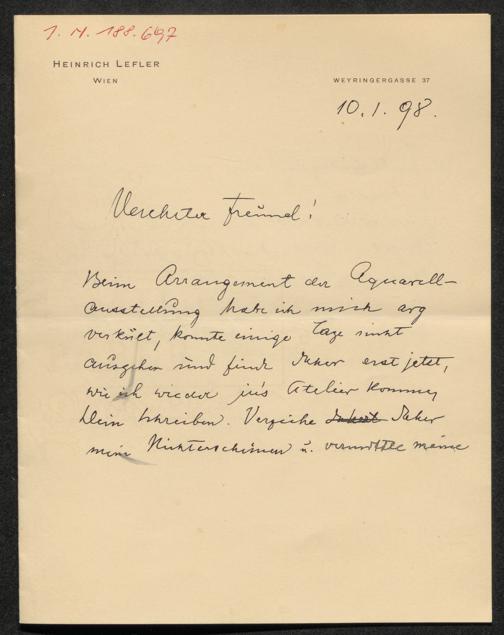 J. N. 188.697
HEINRICH LEFLER
WIEN
WEYRINGERGASSE 37
10.1.98.
Verehrter Freund!
Beim Arrangement der Aquarell-
ausstellung habe ich mich arg
verkült, konnte einige Tage nicht
ausgehen und finde daher erst jetzt,
wie ich wieder in's Atelier komme,
Dein Schreiben. Verzeihe daher
mein Nichterscheinen u. meine